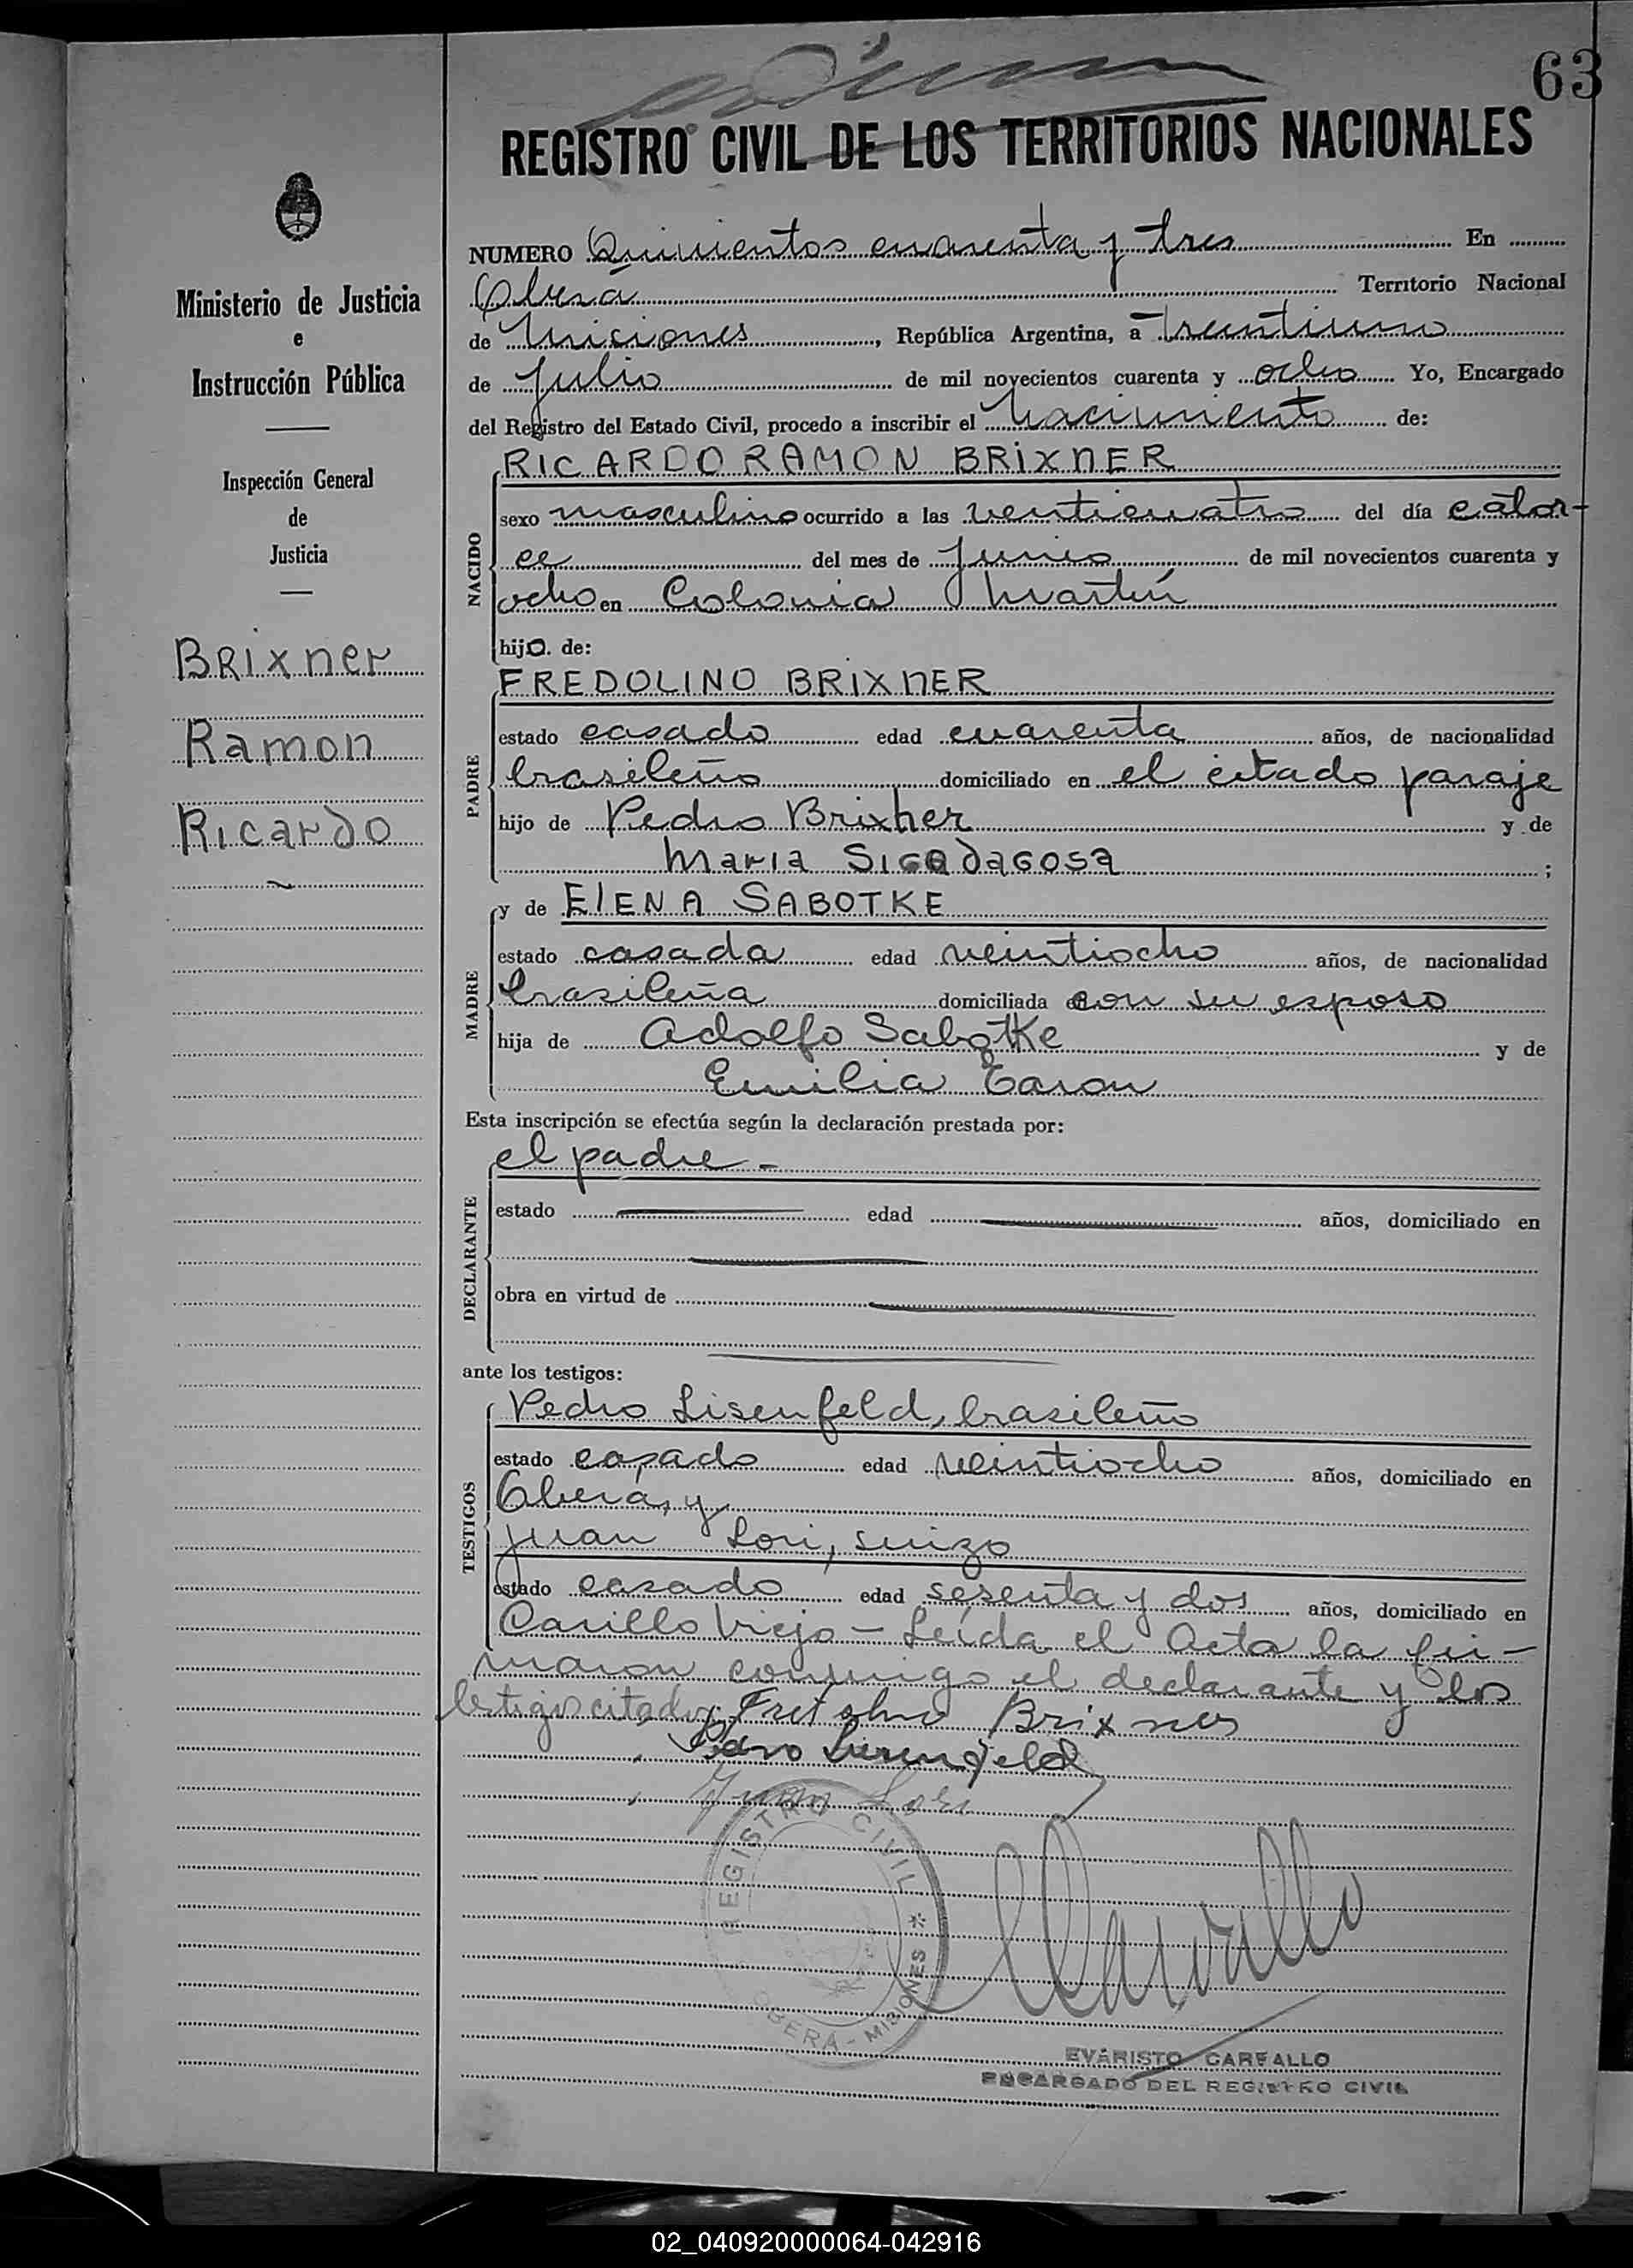 63
REGISTRO CIVIL DE LOS TERRITORIOS NACIONALES
Ministerio de Justicia
e
Instrucción Pública
Inspección General
de
Justicia
Brixner
Ramon
Ricardo
NUMERO Quinientos cuarenta y tres En
Oberá Territorio Nacional
de Misiones, República Argentina, a treintiuno
de Julio de mil novecientos cuarenta y ocho Yo, Encargado
del Registro del Estado Civil, procedo a inscribir el nacimiento de:
RICARDO RAMON BRIXNER
NACIDO
sexo masculino ocurrido a las venticuatro del día cator-
ce del mes de Junio de mil novecientos cuarenta y
ocho en Colonia Martín
hijo. de:
FREDOLINO BRIXNER
PADRE
estado casado edad cuarenta años, de nacionalidad
brasileño domiciliado en el citado paraje
hijo de Pedro Brixner y de
Maria ;
y de ElENA SABOTKE
MADRE
estado casada edad veintiocho años, de nacionalidad
brasileña domiciliada con su esposo
hija de Adolfo Sabotke y de
Emilia
Esta inscripción se efectúa según la declaración prestada por:
el padre -
DECLARANTE
estado edad años, domiciliado en
obra en virtud de
ante los testigos:
Pedro Lisenfeld, brasileño
TESTIGOS
estado casado edad veintiocho años, domiciliado en
Oberá, y
Juan Lori, suizo
estado casado edad sesenta y dos años, domiciliado en
Carillo Viejo - Leída el Acta la fir-
maron conmigo el declarante y los
testigos citados Brixner
Pedro Lisenfeld
Juan Lori
REGISTRO CIVIL
OBERA - MISIONES *
EVARISTO CARVALLO
ENCARGADO DEL REGISTRO CIVIL
02_040920000064-042916